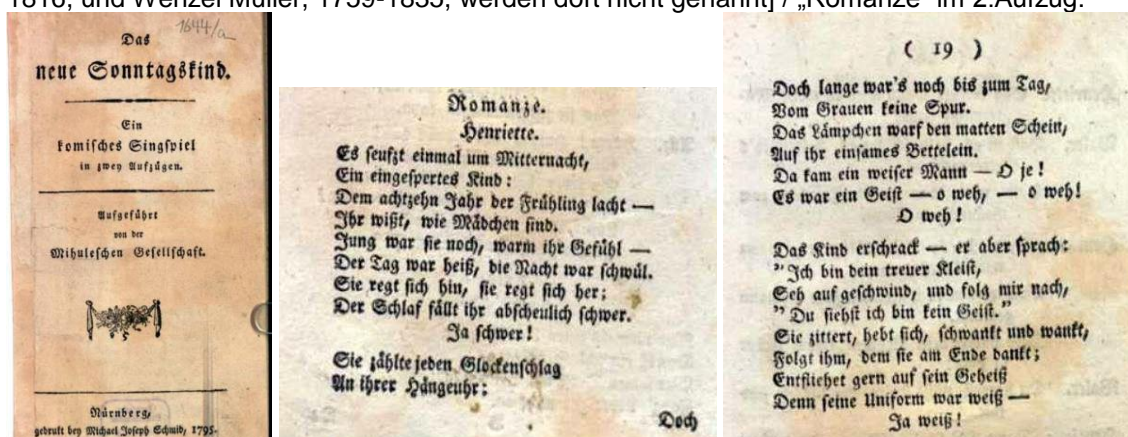 1816, und Wenzel Müller, 1759-1835, werden dort nicht genannt] / „Romanze“ im 2.Aufzug:
1644/a
Das
neue Sonntagskind.
Ein
komisches Singspiel
in zwey Aufzügen.
Aufgeführt
von der
Mihuleschen Gesellschaft.
Nürnberg,
gedrukt bey Michael Joseph Schmid, 1795.
Romanze.
Henriette.
Es seufzt einmal um Mitternacht,
Ein eingespertes Kind:
Dem achtzehn Jahr der Frühling lacht —
Ihr wißt, wie Mädchen sind.
Jung war sie noch, warm ihr Gefühl —
Der Tag war heiß, die Nacht war schwül.
Sie regt sich hin, sie regt sich her;
Der Schlaf fällt ihr abscheulich schwer.
Ja schwer!
Sie zählte jeden Glockenschlag
An ihrer Hängeuhr:
Doch
( 19 )
Doch lange war's noch bis zum Tag,
Vom Grauen keine Spur.
Das Lämpchen warf den matten Schein,
Auf ihr einsames Bettelein.
Da kam ein weiser Mann — O je!
Es war ein Geist — o weh, — o weh!
O weh!
Das Kind erschrack — er aber sprach:
"Ich bin dein treuer Kleist,
Seh auf geschwind, und folg mir nach,
" Du siehst ich bin kein Geist."
Sie zittert, hebt sich, schwankt und wankt,
Folgt ihm, dem sie am Ende dankt;
Entfliehet gern auf sein Geheiß
Denn seine Uniform war weiß —
Ja weiß!